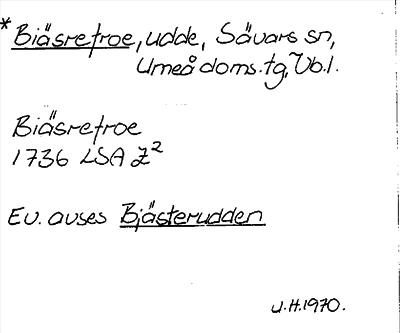 * Biäsretroe, udde, Sävars sn,
Umeå doms.tg, Vb.l.
Biäsretroe
1736 LSA Z²
Ev. avses Bjästerudden
U.H.1970.